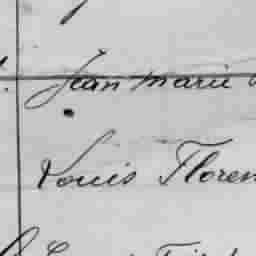 Jean Marie
Louis Floren